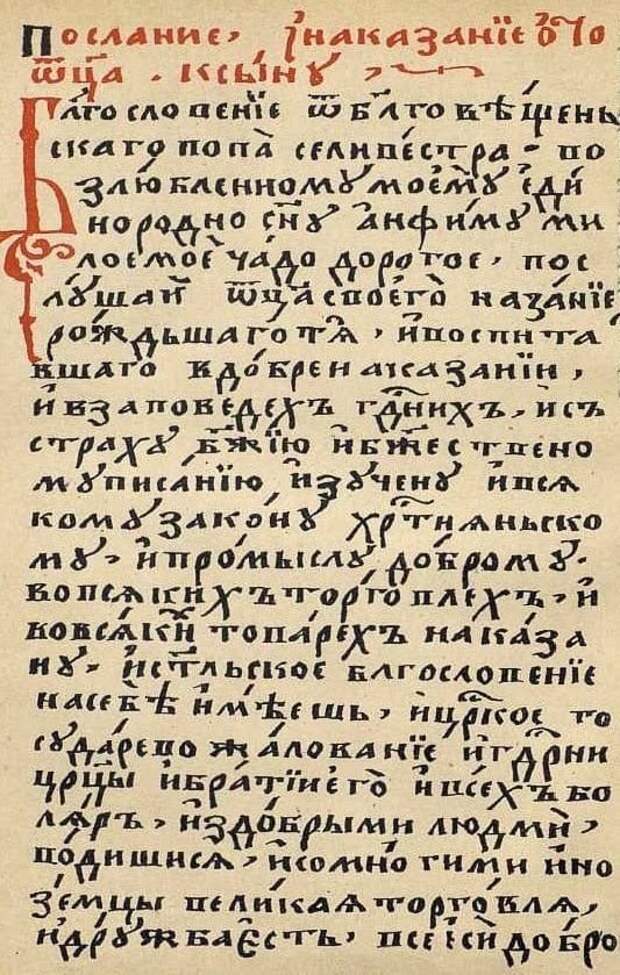 Послание, и҆наказанїе ѿ
ѿца . ксыну ,
Бл҃гословенїе ѿ бл҃говѣщень
скаго попа селивестра . во
злюбленному моемꙋ еди
нородно сн҃ꙋ анфимꙋ ми
лое мое чадо дорогое , пос
лꙋшай ѿца своего наказанїе
рождьшаго тѧ , и воспита
вшаго вдобре наказанїи ,
и взаповедехъ гд҃нихъ , исъ
страхꙋ бж҃їю и бж҃ествено
мꙋ писанїю , изꙋченꙋ и вся
комꙋ законꙋ хрс҃тияньско
мꙋ , и промыслꙋ доброму .
во всяких торговлех , и
во всяких товарехъ наказа
нꙋ , и ст҃льское благословенїе
на себѣ и мѣешь , и црс҃кое го
сꙋдарево жалованїе и гдр҃ни
црц҃ы и братїи его и всехъ бо
ляръ , и здобрыми людми ,
водишися , и сомногими ино
земцы великая торговля ,
и дрꙋжба есть , все еси добро